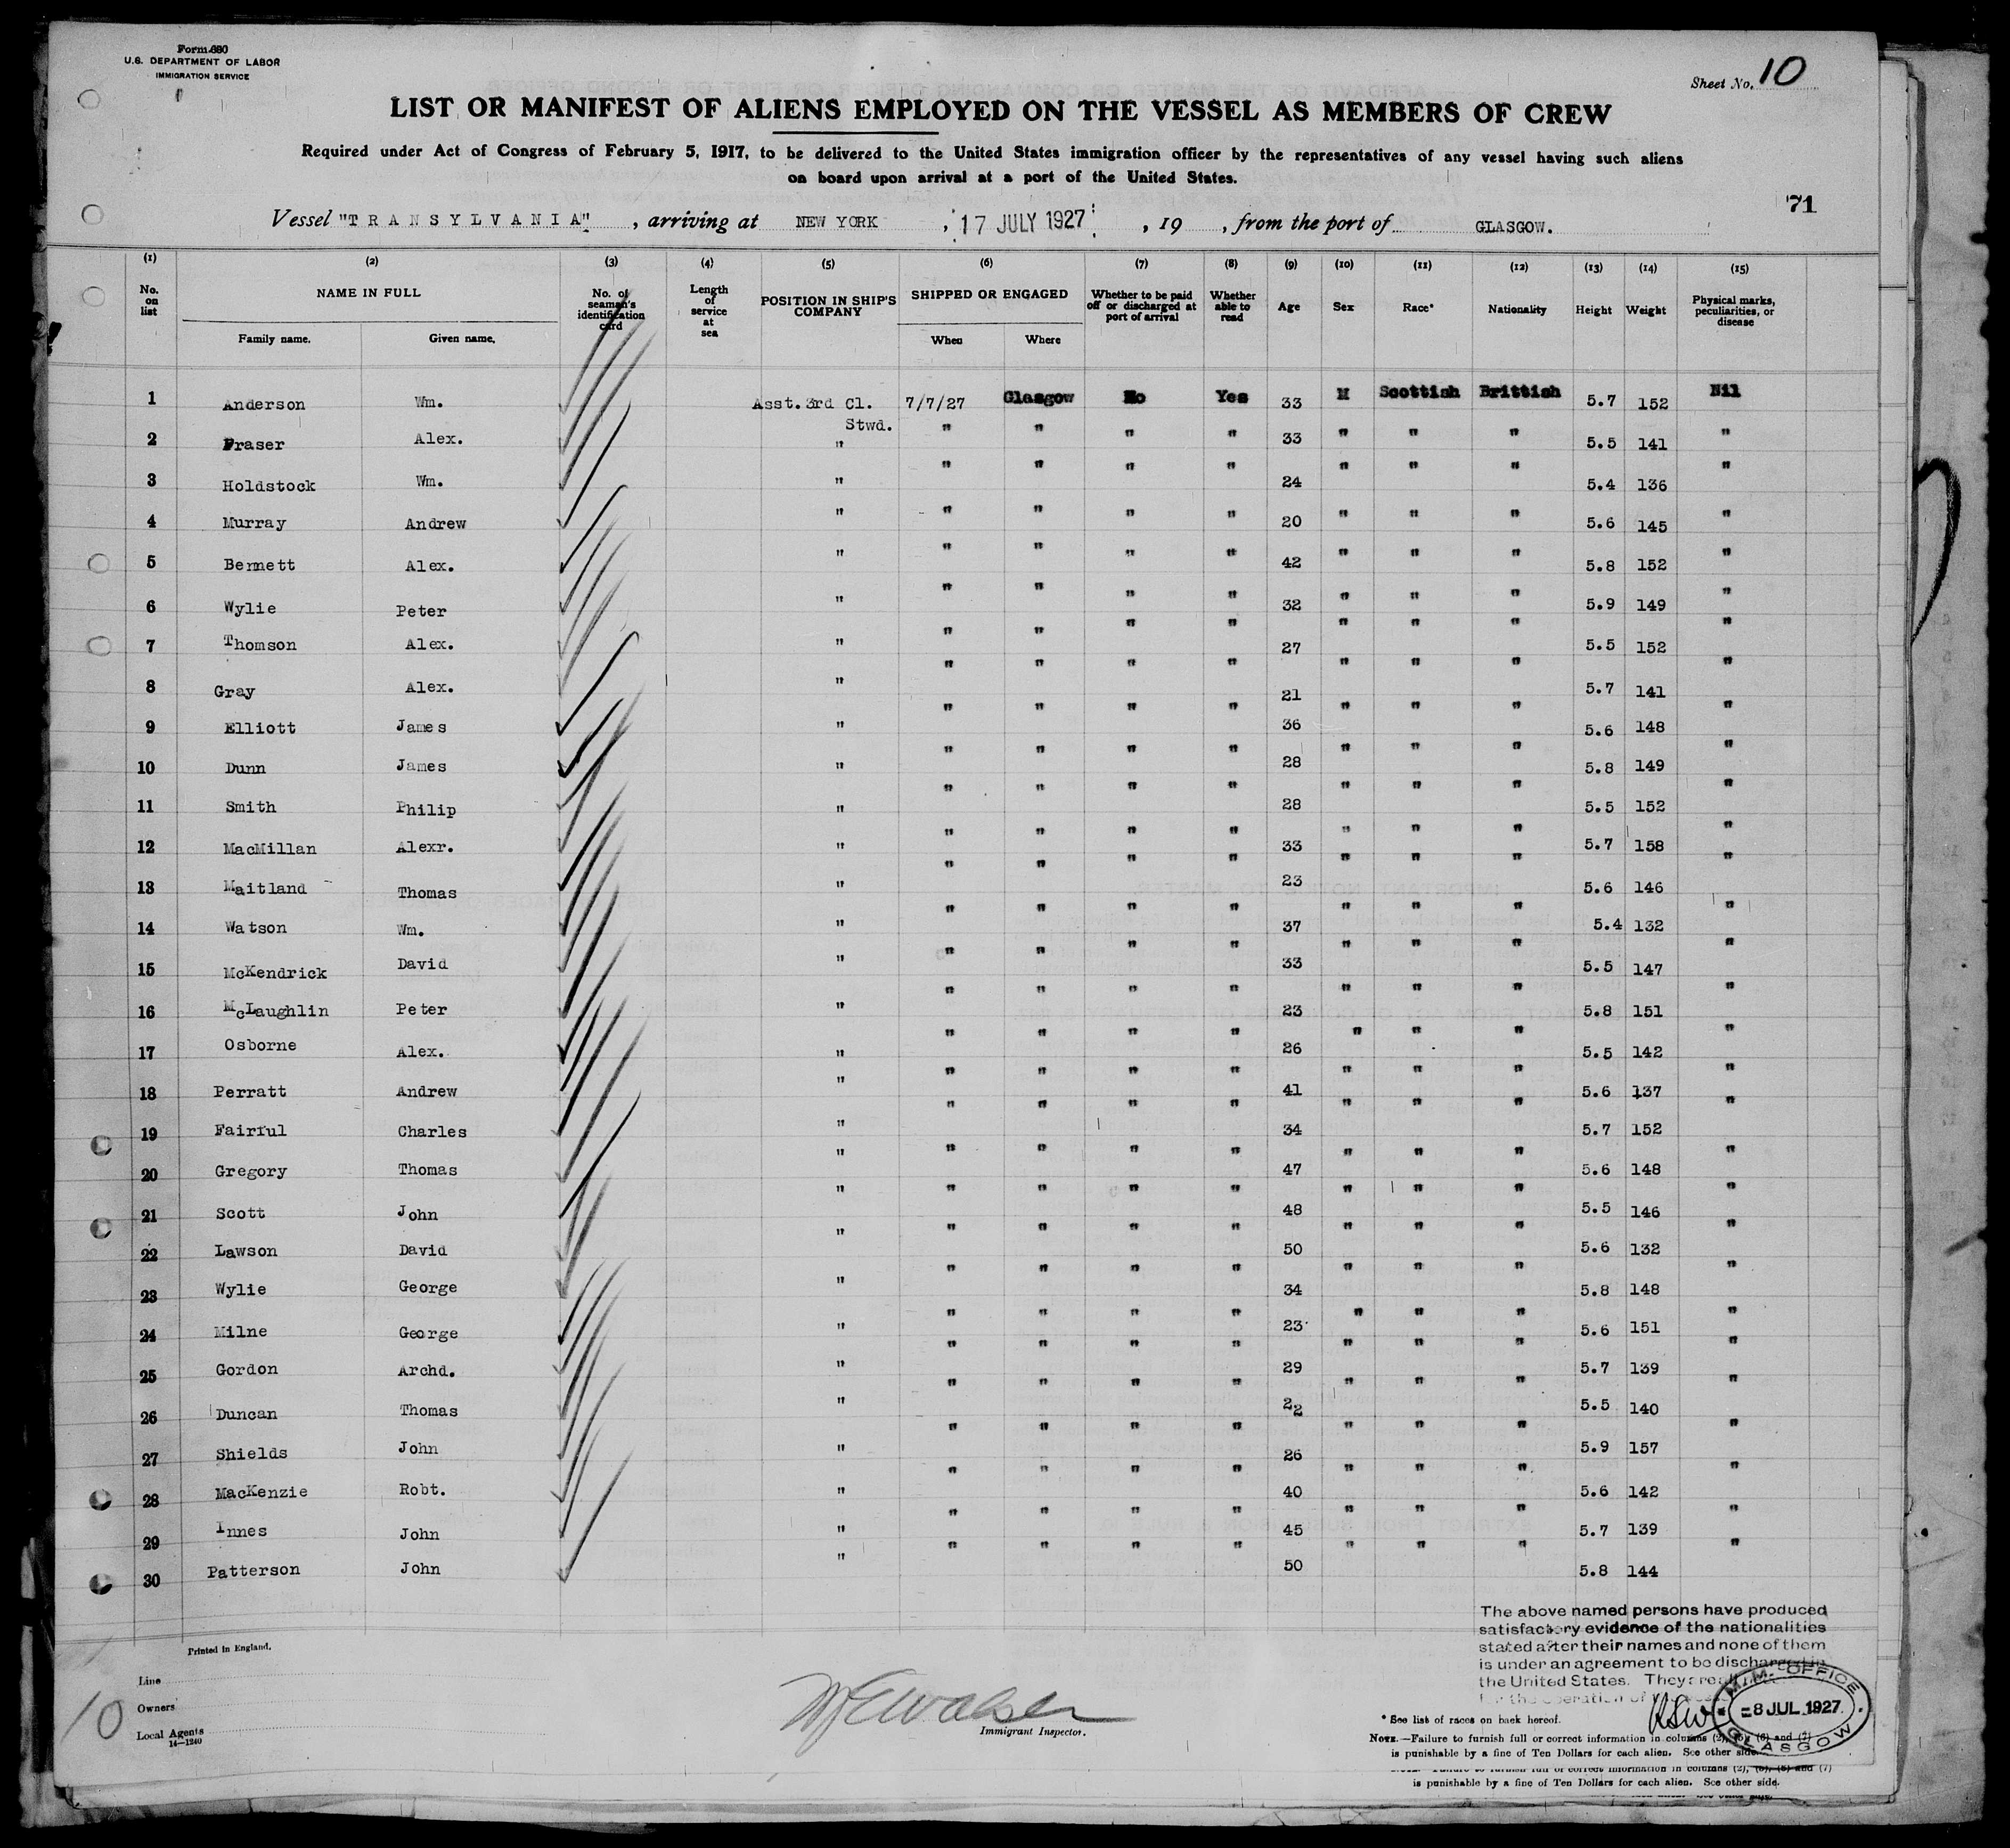 Form 680
U.S. DEPARTMENT OF LABOR
IMMIGRATION SERVICE
Sheet No. 10
LIST OR MANIFEST OF ALIENS EMPLOYED ON THE VESSEL AS MEMBERS OF CREW
Required under Act of Congress of February 5, 1917, to be delivered to the United States immigration officer by the representatives of any vessel having such aliens
on board upon arrival at a port of the United States.
71
Vessel "TRANSYLVANIA", arriving at NEW YORK, 17 JULY 1927, 19 , from the port of GLASGOW.
(1) (2) (3) (4) (5) (6) (7) (8) (9) (10) (11) (12) (13) (14) (15)
No. on list NAME IN FULL Family name. Given name. No. of seaman's identification card Length of service at sea POSITION IN SHIP'S COMPANY SHIPPED OR ENGAGED When Where Whether to be paid off or discharged at port of arrival Whether able to read Age Sex Race* Nationality Height Weight Physical marks, peculiarities, or disease
1 Anderson Wm. Asst. 3rd Cl. Stwd. 7/7/27 Glasgow No Yes 33 M Scottish Brittish 5.7 152 Nil
2 Fraser Alex. " " " " " 33 " " " 5.5 141 "
3 Holdstock Wm. " " " " " 24 " " " 5.4 136 "
4 Murray Andrew " " " " " 20 " " " 5.6 145 "
5 Bennett Alex. " " " " " 42 " " " 5.8 152 "
6 Wylie Peter " " " " " 32 " " " 5.9 149 "
7 Thomson Alex. " " " " " 27 " " " 5.5 152 "
8 Gray Alex. " " " " " 21 " " " 5.7 141 "
9 Elliott James " " " " " 36 " " " 5.6 148 "
10 Dunn James " " " " " 28 " " " 5.8 149 "
11 Smith Philip " " " " " 28 " " " 5.5 152 "
12 MacMillan Alexr. " " " " " 33 " " " 5.7 158 "
13 Maitland Thomas " " " " " 23 " " " 5.6 146 "
14 Watson Wm. " " " " " 37 " " " 5.4 132 "
15 McKendrick David " " " " " 33 " " " 5.5 147 "
16 McLaughlin Peter " " " " " 23 " " " 5.8 151 "
17 Osborne Alex. " " " " " 26 " " " 5.5 142 "
18 Perratt Andrew " " " " " 41 " " " 5.6 137 "
19 Fairful Charles " " " " " 34 " " " 5.7 152 "
20 Gregory Thomas " " " " " 47 " " " 5.6 148 "
21 Scott John " " " " " 48 " " " 5.5 146 "
22 Lawson David " " " " " 50 " " " 5.6 132 "
23 Wylie George " " " " " 34 " " " 5.8 148 "
24 Milne George " " " " " 23 " " " 5.6 151 "
25 Gordon Archd. " " " " " 29 " " " 5.7 139 "
26 Duncan Thomas " " " " " 22 " " " 5.5 140 "
27 Shields John " " " " " 26 " " " 5.9 157 "
28 MacKenzie Robt. " " " " " 40 " " " 5.6 142 "
29 Innes John " " " " " 45 " " " 5.7 139 "
30 Patterson John " " " " " 50 " " " 5.8 144 "
The above named persons have produced
satisfactory evidence of the nationalities
stated after their names and none of them
is under an agreement to be discharged in
the United States. They are
for the operation of
Printed in England.
Line
Owners
Local Agents
14-1240
10
Immigrant Inspector.
IMM. OFFICE
8 JUL 1927
GLASGOW
* See list of races on back hereof.
NOTE.—Failure to furnish full or correct information in columns (2), (5), (6) and (7)
is punishable by a fine of Ten Dollars for each alien. See other side.
NOTE.—Failure to furnish full or correct information in columns (2), (5), (6) and (7)
is punishable by a fine of Ten Dollars for each alien. See other side.